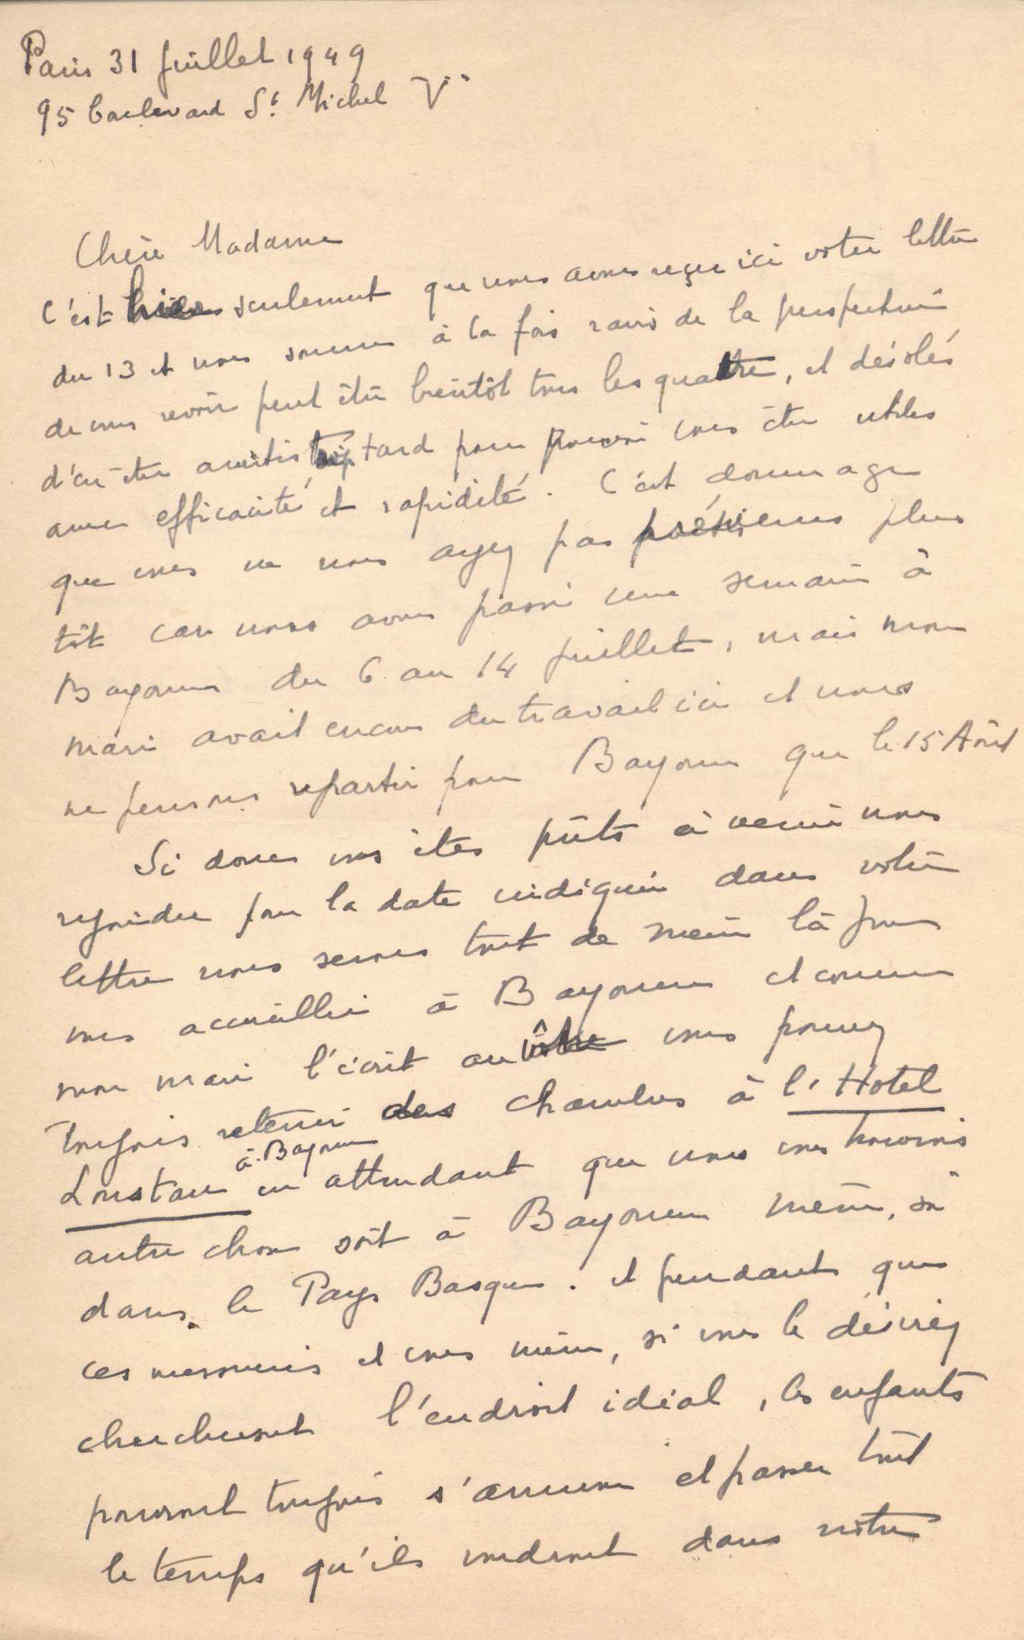 Paris 31 Juillet 1949
95 boulevard St. Michel Ve
Chère Madame
C'est hier seulement que nous avons reçu ici votre lettre
du 13 et nous sommes à la fois ravis de la perspective
de vous revoir peut être bientôt tous les quatre, et désolés
d'en être avertis trop tard pour pouvoir vous être utiles
avec efficacité et rapidité. C'est dommage
que vous ne nous ayez pas prévenus plus
tôt car nous avons passé une semaine à
Bayonne du 6 au 14 juillet, mais mon
mari avait encore du travail ici et nous
ne pensons repartir pour Bayonne que le 15 Août
Si donc vous êtes prêts à venir nous
rejoindre pour la date indiquée dans votre
lettre nous serons tout de même là pour
vous accueillir à Bayonne et comme
mon mari l'écrit au vôtre vous pouvez
toujours retenir des chambres à l'Hotel
Loustau à Bayonne en attendant que nous vous trouvions
autre chose soit à Bayonne même, soit
dans le Pays Basque. et pendant que
ces messieurs et vous même, si vous le désirez
chercheront l'endroit idéal, les enfants
pourront toujours s'amuser et passer tout
le temps qu'ils voudront dans notre